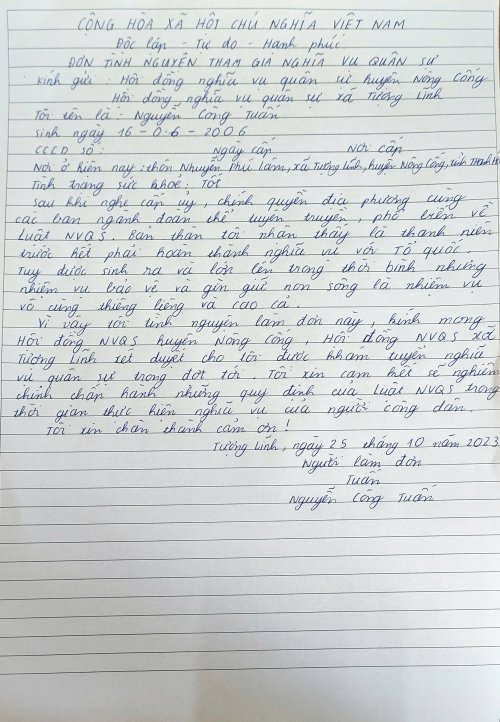 CỘNG HÒA XÃ HỘI CHỦ NGHĨA VIỆT NAM
Độc lập - Tự do - Hạnh phúc
ĐƠN TÌNH NGUYỆN THAM GIA NGHĨA VỤ QUÂN SỰ
Kính gửi : Hội đồng nghĩa vụ quân sự huyện Nông Cống
Hội đồng nghĩa vụ quân sự xã Tượng Lĩnh
Tôi tên là : Nguyễn Công Tuấn
Sinh ngày 16 - 06 - 2006
CCCD số : Ngày cấp Nơi cấp
Nơi ở hiện nay : thôn Nhuyễn Phú Lâm, xã Tượng Lĩnh, huyện Nông Cống, tỉnh Thanh Hóa
Tình trạng sức khỏe : Tốt
Sau khi nghe cấp ủy, chính quyền địa phương cùng
các ban ngành đoàn thể tuyên truyền, phổ biến về
Luật NVQS. Bản thân tôi nhận thấy là thanh niên
trước hết phải hoàn thành nghĩa vụ với Tổ quốc.
Tuy được sinh ra và lớn lên trong thời bình nhưng
nhiệm vụ bảo vệ và gìn giữ non sông là nhiệm vụ
vô cùng thiêng liêng và cao cả.
Vì vậy tôi tình nguyện làm đơn này, kính mong
Hội đồng NVQS huyện Nông Cống, Hội đồng NVQS xã
Tượng Lĩnh xét duyệt cho tôi được khám tuyển nghĩa
vụ quân sự trong đợt tới. Tôi xin cam kết sẽ nghiêm
chỉnh chấp hành những quy định của Luật NVQS trong
thời gian thực hiện nghĩa vụ của người công dân.
Tôi xin chân thành cảm ơn !
Tượng Lĩnh, ngày 25 tháng 10 năm 2023
Người làm đơn
Tuấn
Nguyễn Công Tuấn